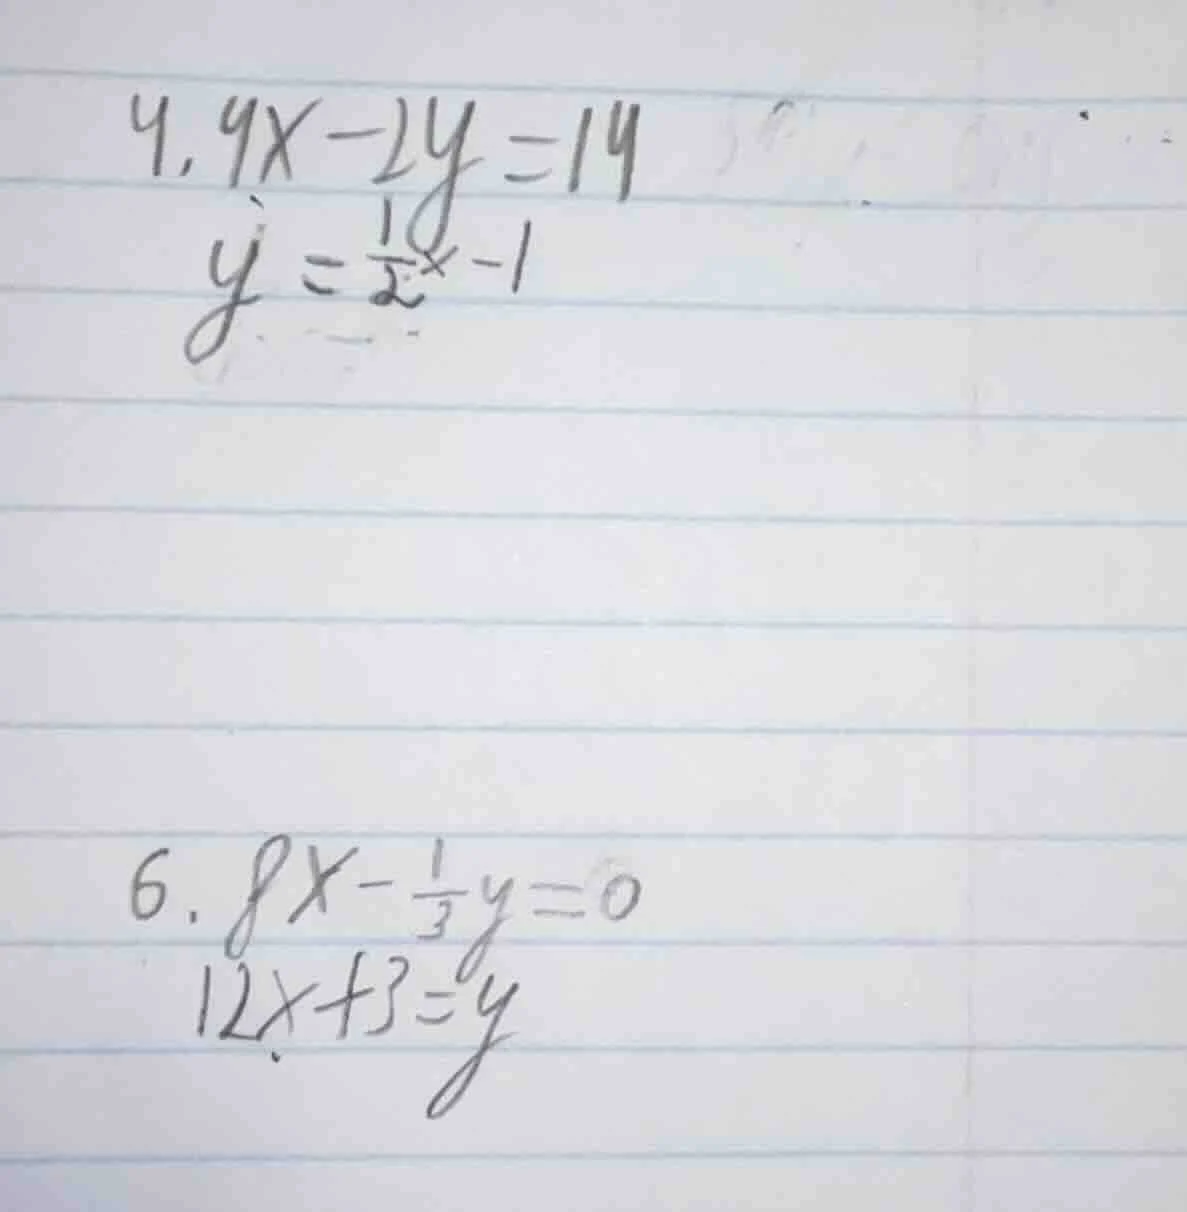 4. 4x - 2y = 14
y = 1/2 x - 1
6. 8x - 1/3 y = 0
12x + 3 = y